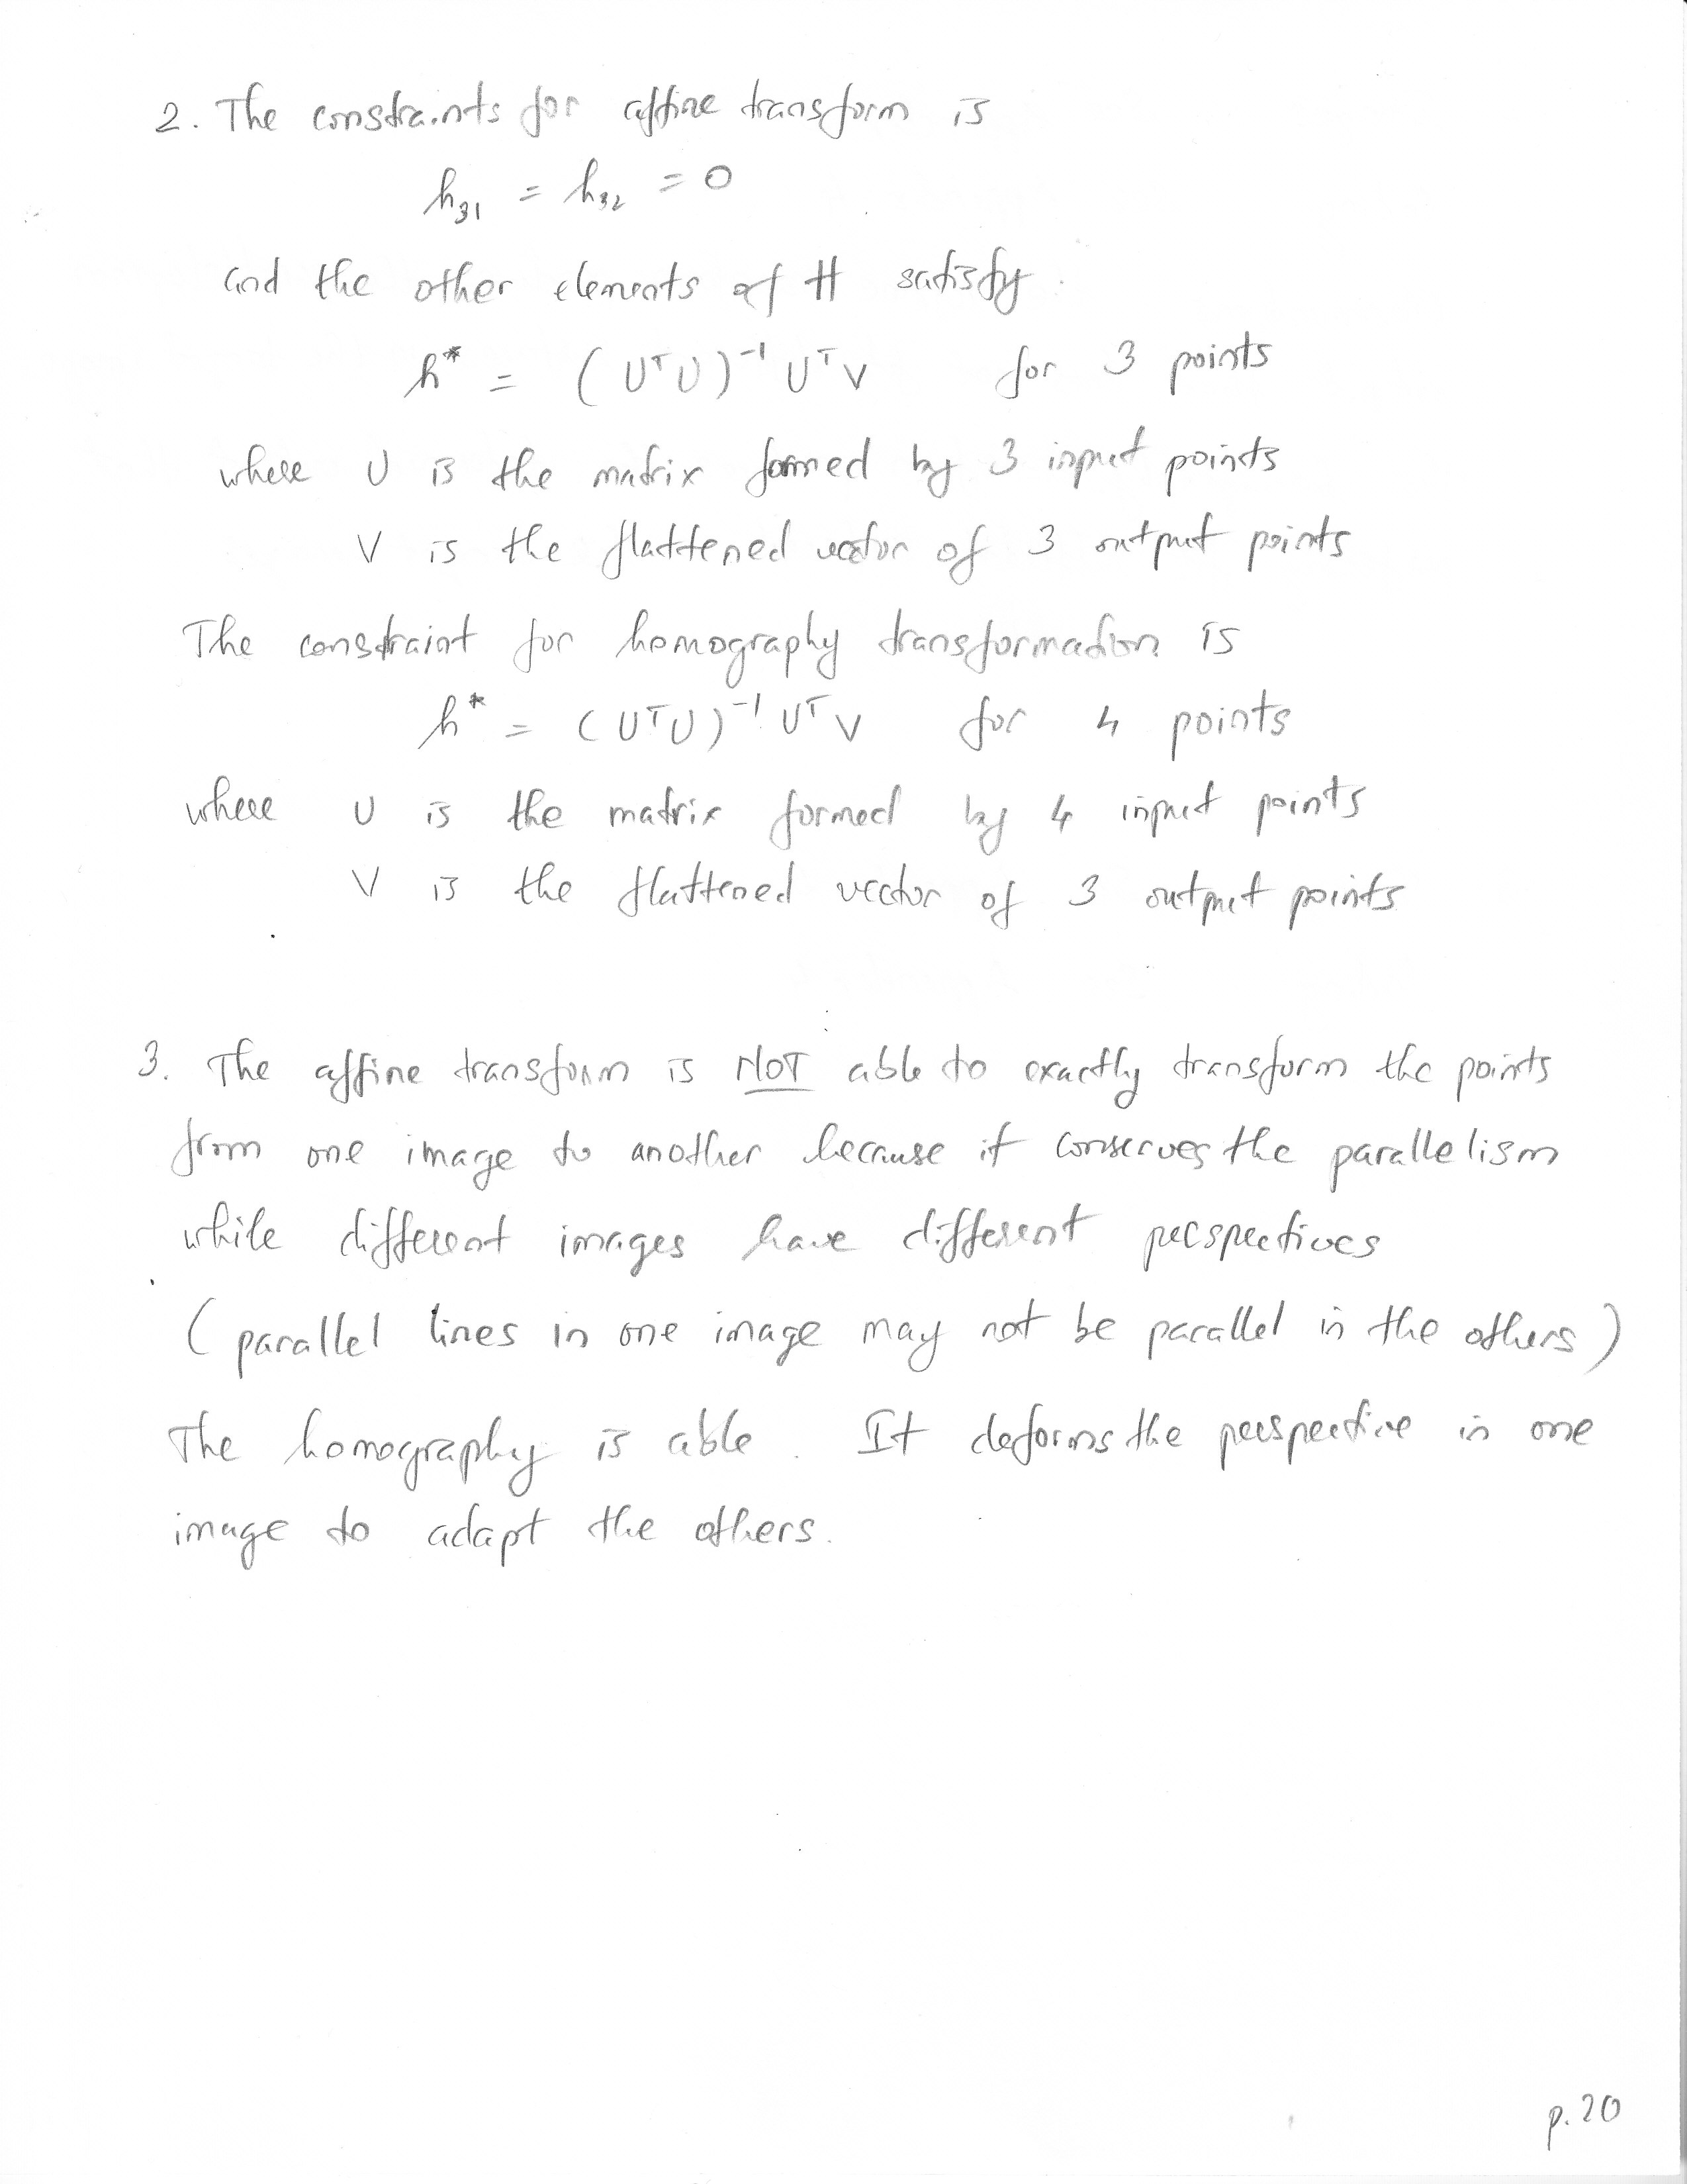 2. The constraints for affine transform is
h₃₁ = h₃₂ = 0
and the other elements of H satisfy
h* = (UᵀU)⁻¹UᵀV for 3 points
where U is the matrix formed by 3 input points
V is the flattened vector of 3 output points
The constraint for homography transformation is
h* = (UᵀU)⁻¹UᵀV for 4 points
where U is the matrix formed by 4 input points
V is the flattened vector of 3 output points
3. The affine transform is NOT able to exactly transform the points
from one image to another because it conserves the parallelism
while different images have different perspectives
(parallel lines in one image may not be parallel in the others)
The homography is able. It deforms the perspective in one
image to adapt the others.
p.20